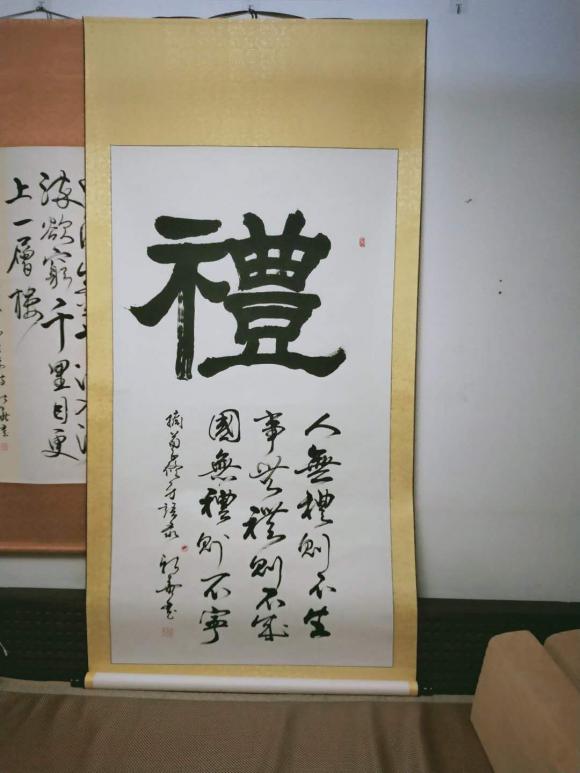 禮
人無禮則不生
事無禮則不成
國無禮則不寧
摘荀子修身語录
流欲窮千里目更
上一層樓